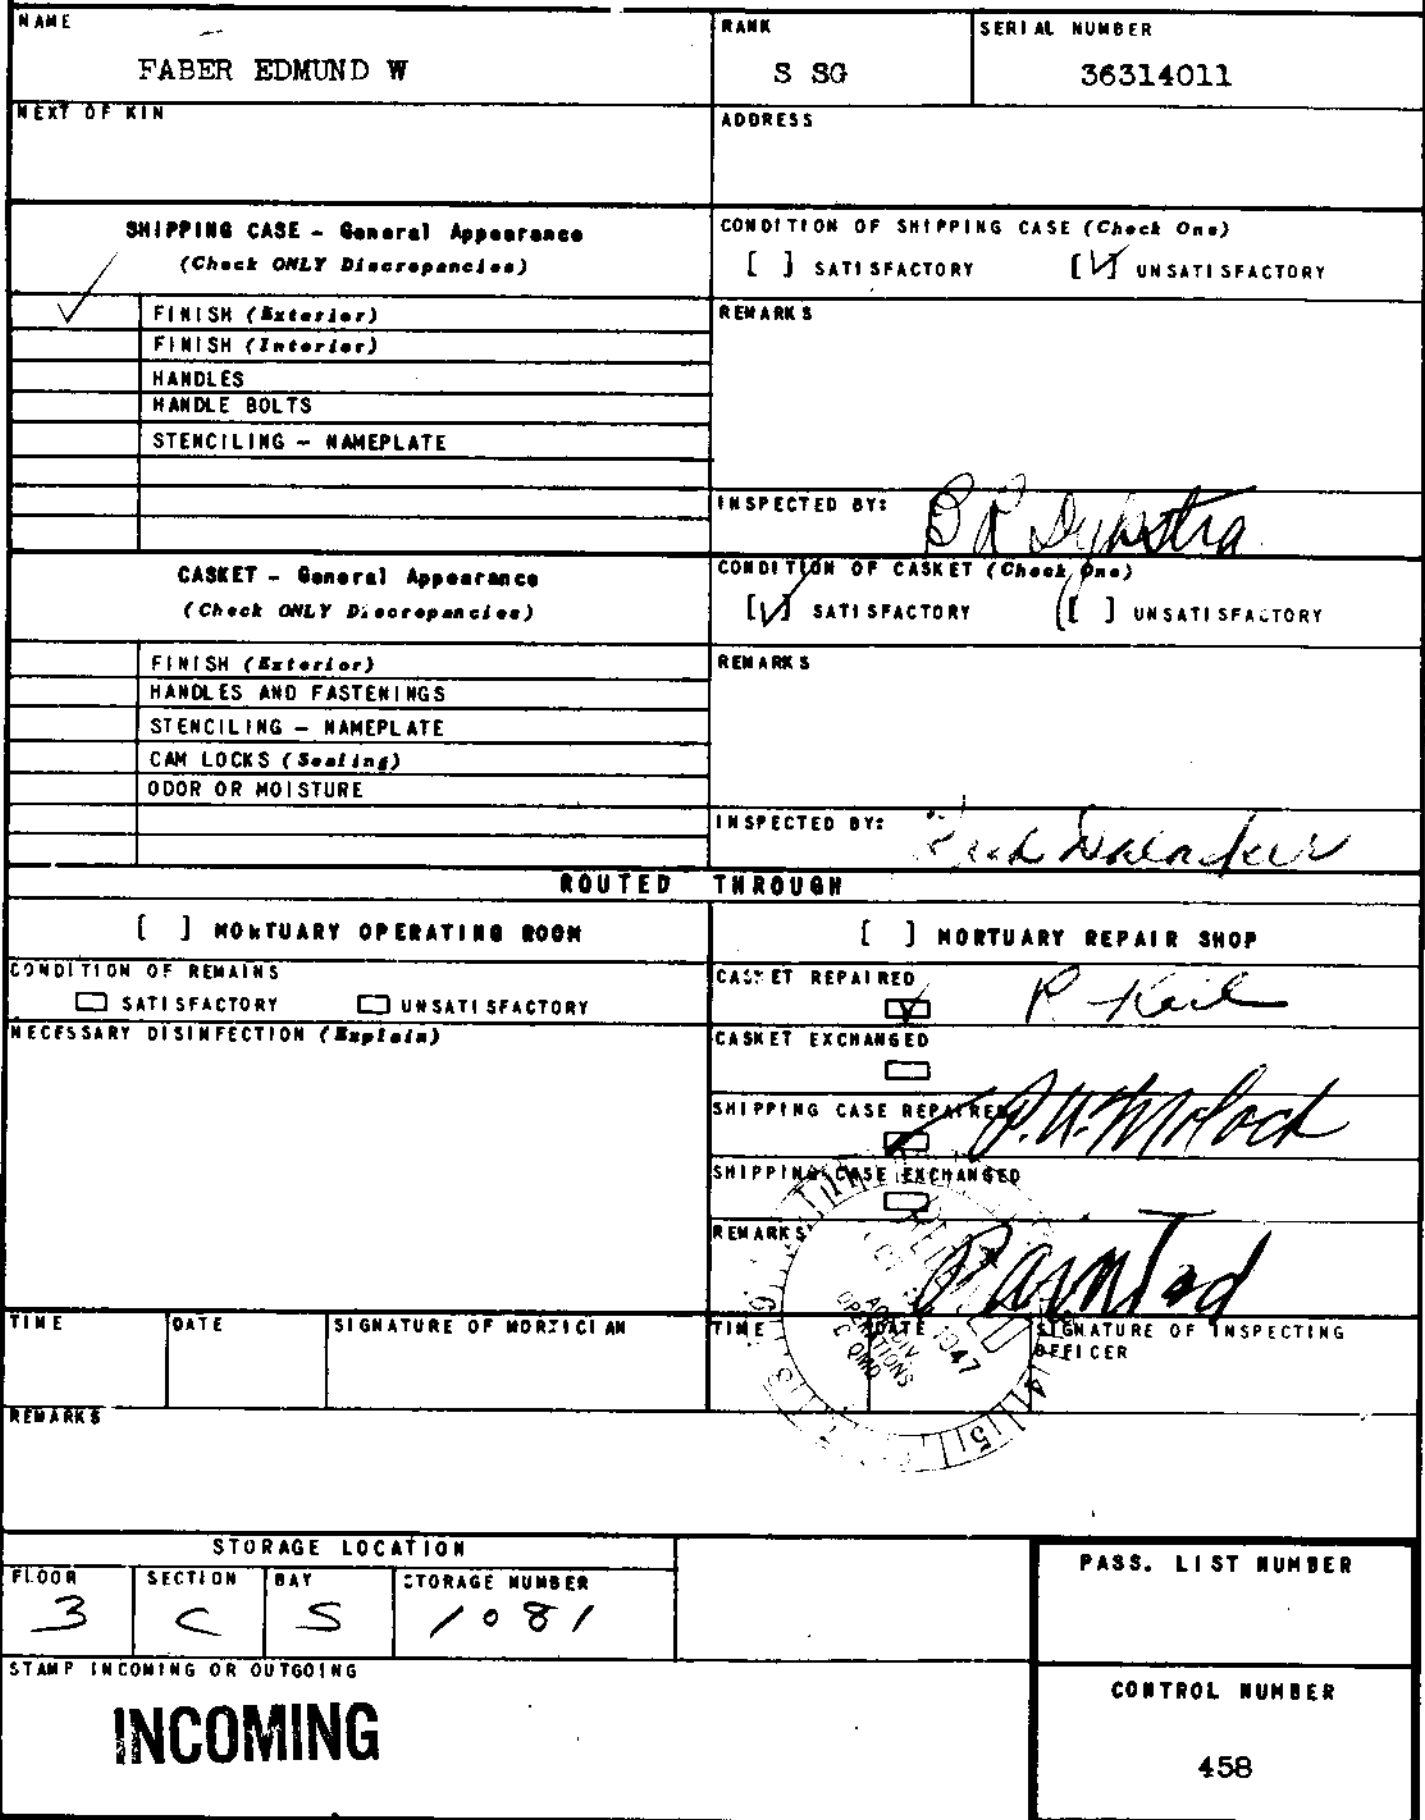 NAME
FABER EDMUND W
RANK
S SG
SERIAL NUMBER
36314011
NEXT OF KIN
ADDRESS
SHIPPING CASE - General Appearance
(Check ONLY Discrepancies)
✓ FINISH (Exterior)
FINISH (Interior)
HANDLES
HANDLE BOLTS
STENCILING - NAMEPLATE
CONDITION OF SHIPPING CASE (Check One)
[ ] SATISFACTORY [✓] UNSATISFACTORY
REMARKS
INSPECTED BY: B R Dykstra
CASKET - General Appearance
(Check ONLY Discrepancies)
FINISH (Exterior)
HANDLES AND FASTENINGS
STENCILING - NAMEPLATE
CAM LOCKS (Sealing)
ODOR OR MOISTURE
CONDITION OF CASKET (Check One)
[✓] SATISFACTORY [ ] UNSATISFACTORY
REMARKS
INSPECTED BY:
ROUTED THROUGH
[ ] MORTUARY OPERATING ROOM
CONDITION OF REMAINS
SATISFACTORY UNSATISFACTORY
NECESSARY DISINFECTION (Explain)
[ ] MORTUARY REPAIR SHOP
CASKET REPAIRED
✓ R Keil
CASKET EXCHANGED
SHIPPING CASE REPAIRED
SHIPPING CASE EXCHANGED
REMARKS
Painted
TIME
DATE
SIGNATURE OF MORTICIAN
TIME
DATE
SIGNATURE OF INSPECTING OFFICER
1947
OPERATIONS
REMARKS
STORAGE LOCATION
FLOOR
3
SECTION
C
BAY
5
STORAGE NUMBER
1081
STAMP INCOMING OR OUTGOING
INCOMING
PASS. LIST NUMBER
CONTROL NUMBER
458